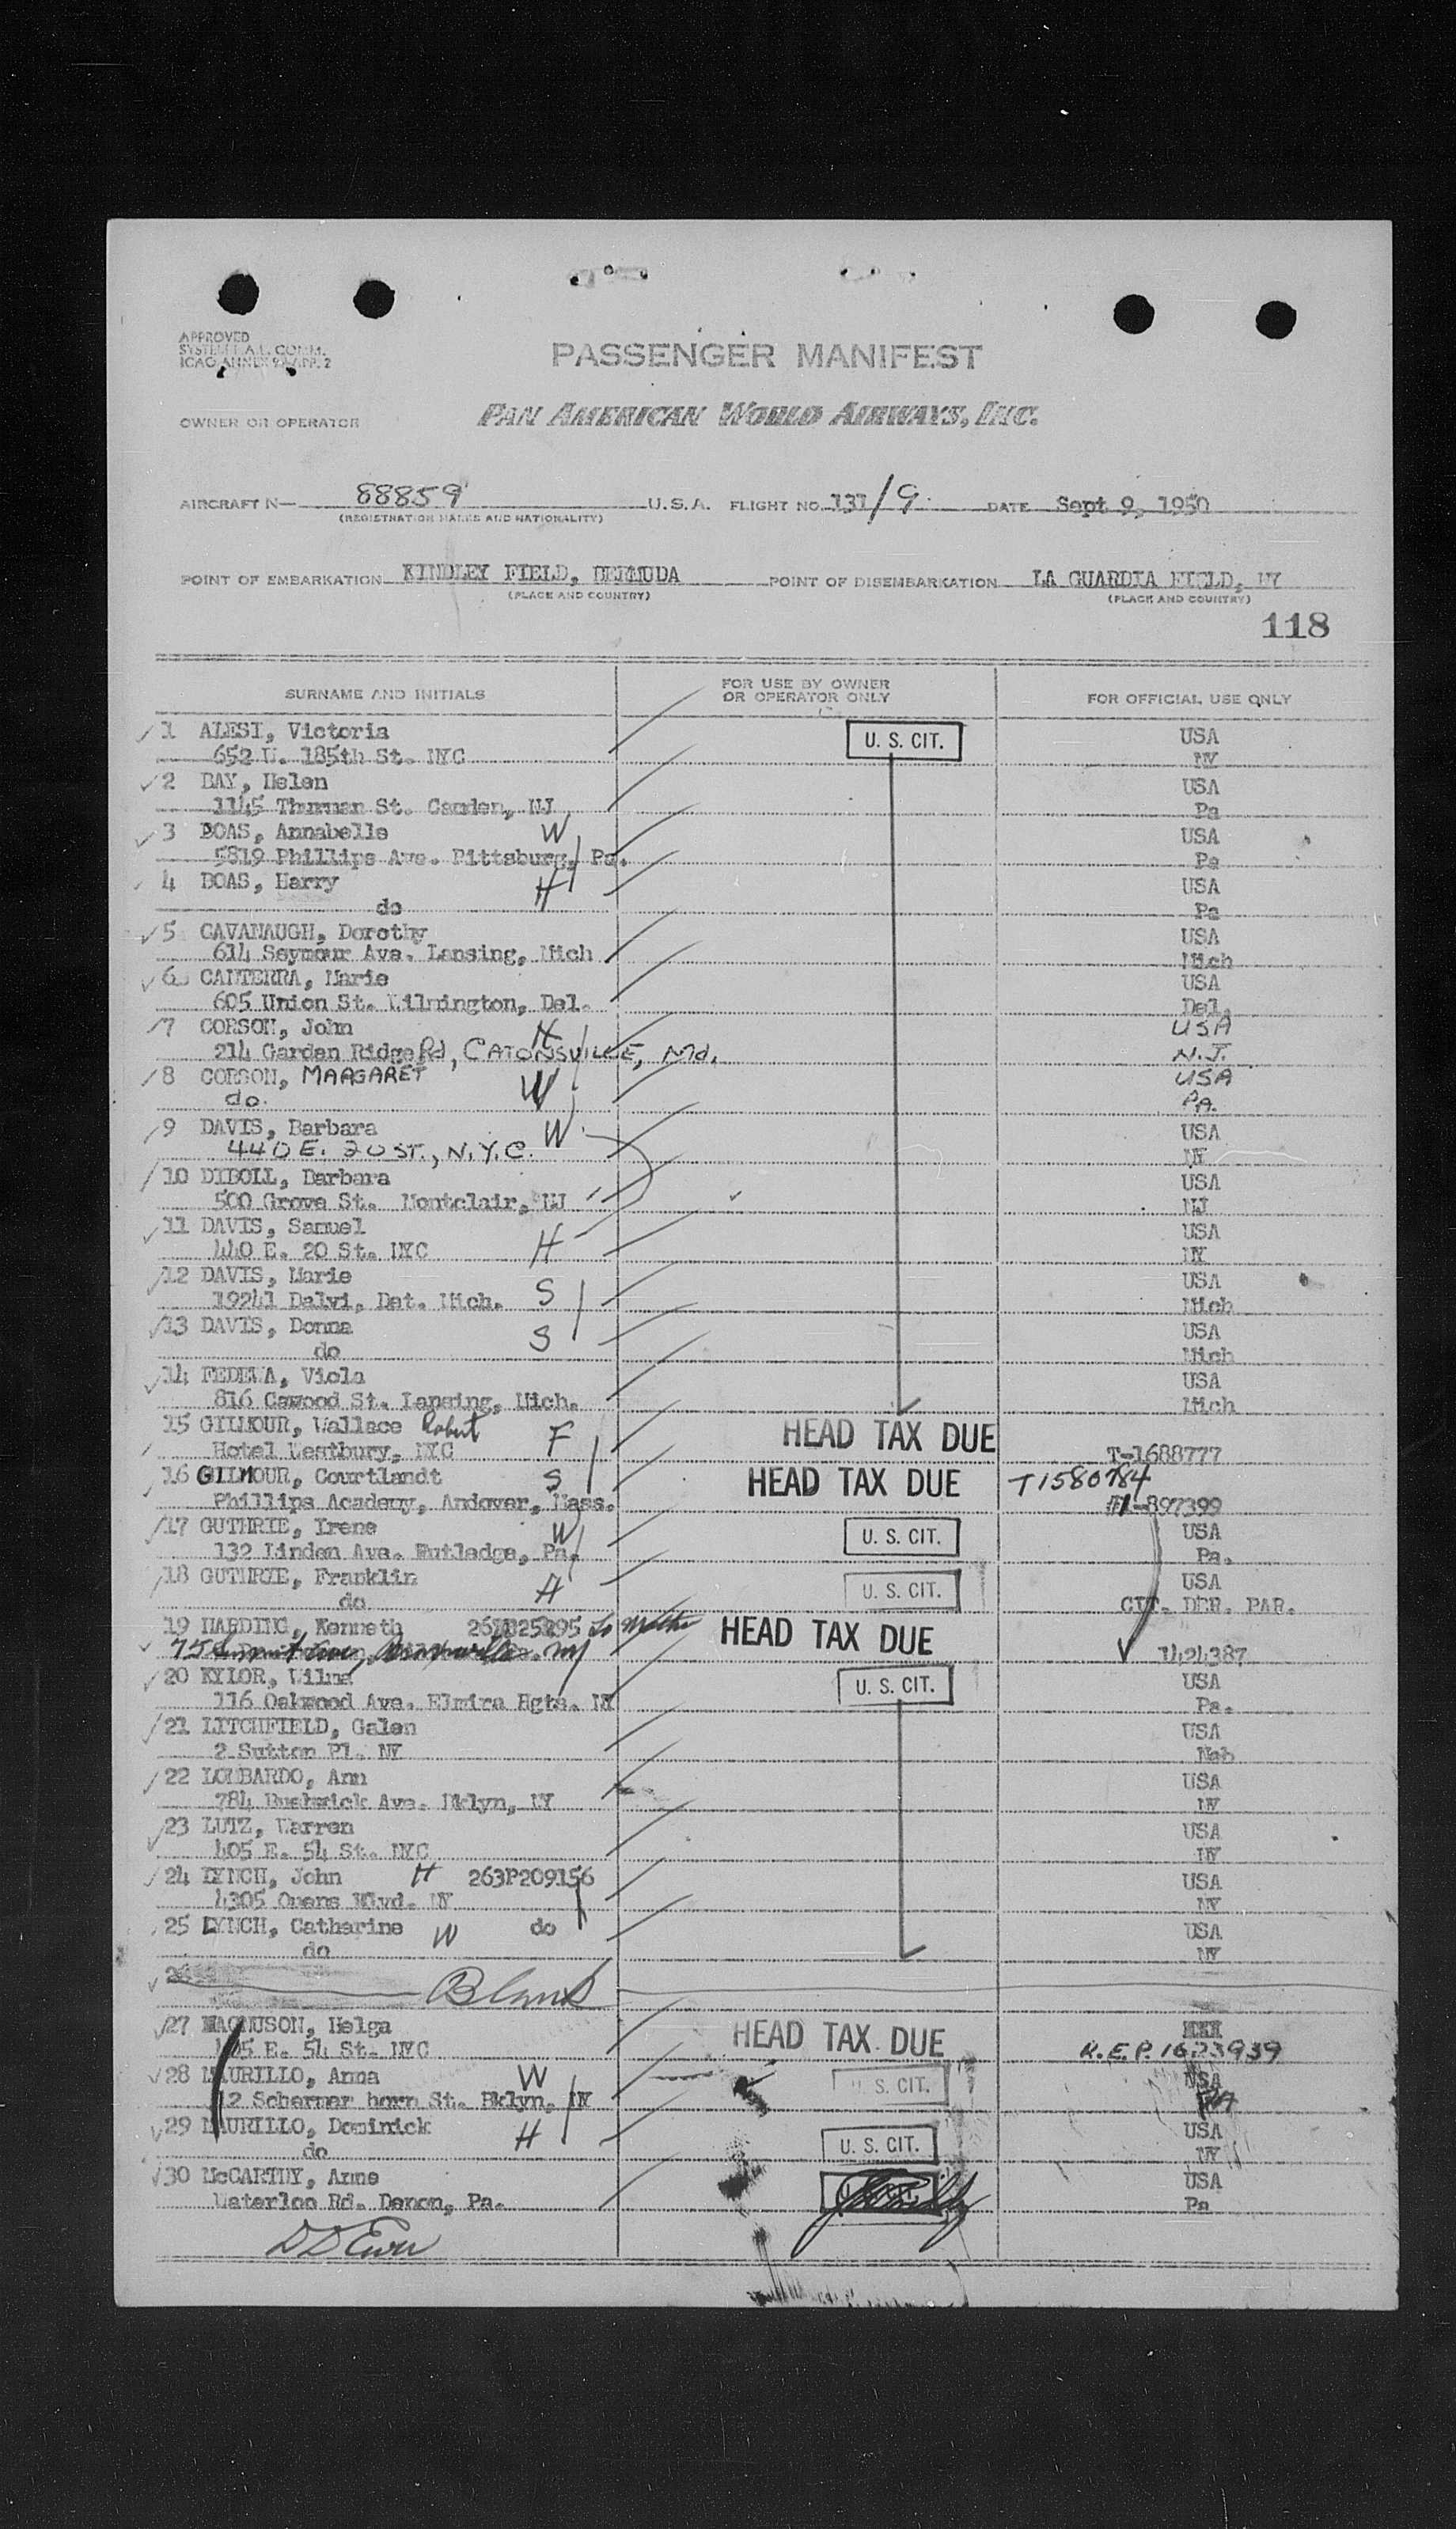 APPROVED
SYSTEM F.A.L. COMM.
ICAO ANNEX 9 APP. 2
PASSENGER MANIFEST
OWNER OR OPERATOR PAN AMERICAN WORLD AIRWAYS, INC.
AIRCRAFT N— 88859 U.S.A. FLIGHT NO. 131/9. DATE Sept 9, 1950
(REGISTRATION MARKS AND NATIONALITY)
POINT OF EMBARKATION KINDLEY FIELD, BERMUDA POINT OF DISEMBARKATION LA GUARDIA FIELD, NY
(PLACE AND COUNTRY) (PLACE AND COUNTRY)
118
SURNAME AND INITIALS FOR USE BY OWNER OR OPERATOR ONLY FOR OFFICIAL USE ONLY
1 ALESI, Victoria U. S. CIT. USA
652 W. 185th St. NYC NY
2 DAY, Helen USA
1145 Thurman St. Camden, NJ Pa
3 BOAS, Annabelle W USA
5819 Phillips Ave. Pittsburg, Pa. Pa
4 BOAS, Harry H USA
do Pa
5 CAVANAUGH, Dorothy USA
614 Seymour Ave. Lansing, Mich Mich
6 CANTERRA, Marie USA
605 Union St. Wilmington, Del. Del.
7 CORSON, John H USA
214 Garden Ridge Rd, CATONSVILLE, Md. N.J.
8 CORSON, MARGARET W USA
do. PA.
9 DAVIS, Barbara W USA
440 E. 20 ST., N.Y.C. NY
10 DIBOLL, Barbara USA
500 Grove St. Montclair, NJ NJ
11 DAVIS, Samuel H USA
440 E. 20 St. NYC NY
12 DAVIS, Marie S USA
19241 Dalvi, Det. Mich. Mich
13 DAVIS, Donna S USA
do Mich
14 FEDEWA, Viola USA
816 Cawood St. Lansing, Mich. Mich
15 GILMOUR, Wallace Robert F HEAD TAX DUE
Hotel Westbury, NYC T-1688777
16 GILMOUR, Courtlandt S HEAD TAX DUE T1580784
Phillips Academy, Andover, Mass. -897399
17 GUTHRIE, Irene W U. S. CIT. USA
132 Linden Ave. Rutledge, Pa. Pa.
18 GUTHRIE, Franklin H U. S. CIT. USA
do CIT. DER. PAR.
19 HARDING, Kenneth HEAD TAX DUE
75 1424387
20 KYLOR, Wilma U. S. CIT. USA
116 Oakwood Ave. Elmira Hgts. NY Pa.
21 LITCHFIELD, Galen USA
2 Sutton Pl. NY Neb
22 LOMBARDO, Ann USA
784 Bushwick Ave. Bklyn, NY NY
23 LUTZ, Warren USA
405 E. 54 St. NYC NY
24 LYNCH, John H 263P209156 USA
4305 Qnens Blvd. NY NY
25 LYNCH, Catharine W do USA
do NY
26 Blank
27 MAGNUSON, Helga HEAD TAX DUE
405 E. 54 St. NYC R.E.P. 1623939
28 MAURILLO, Anna W U. S. CIT. USA
12 Schermer horn St. Bklyn, NY
29 MAURILLO, Dominick H U. S. CIT. USA
do NY
30 McCARTHY, Anne USA
Waterloo Rd. Devon, Pa. Pa